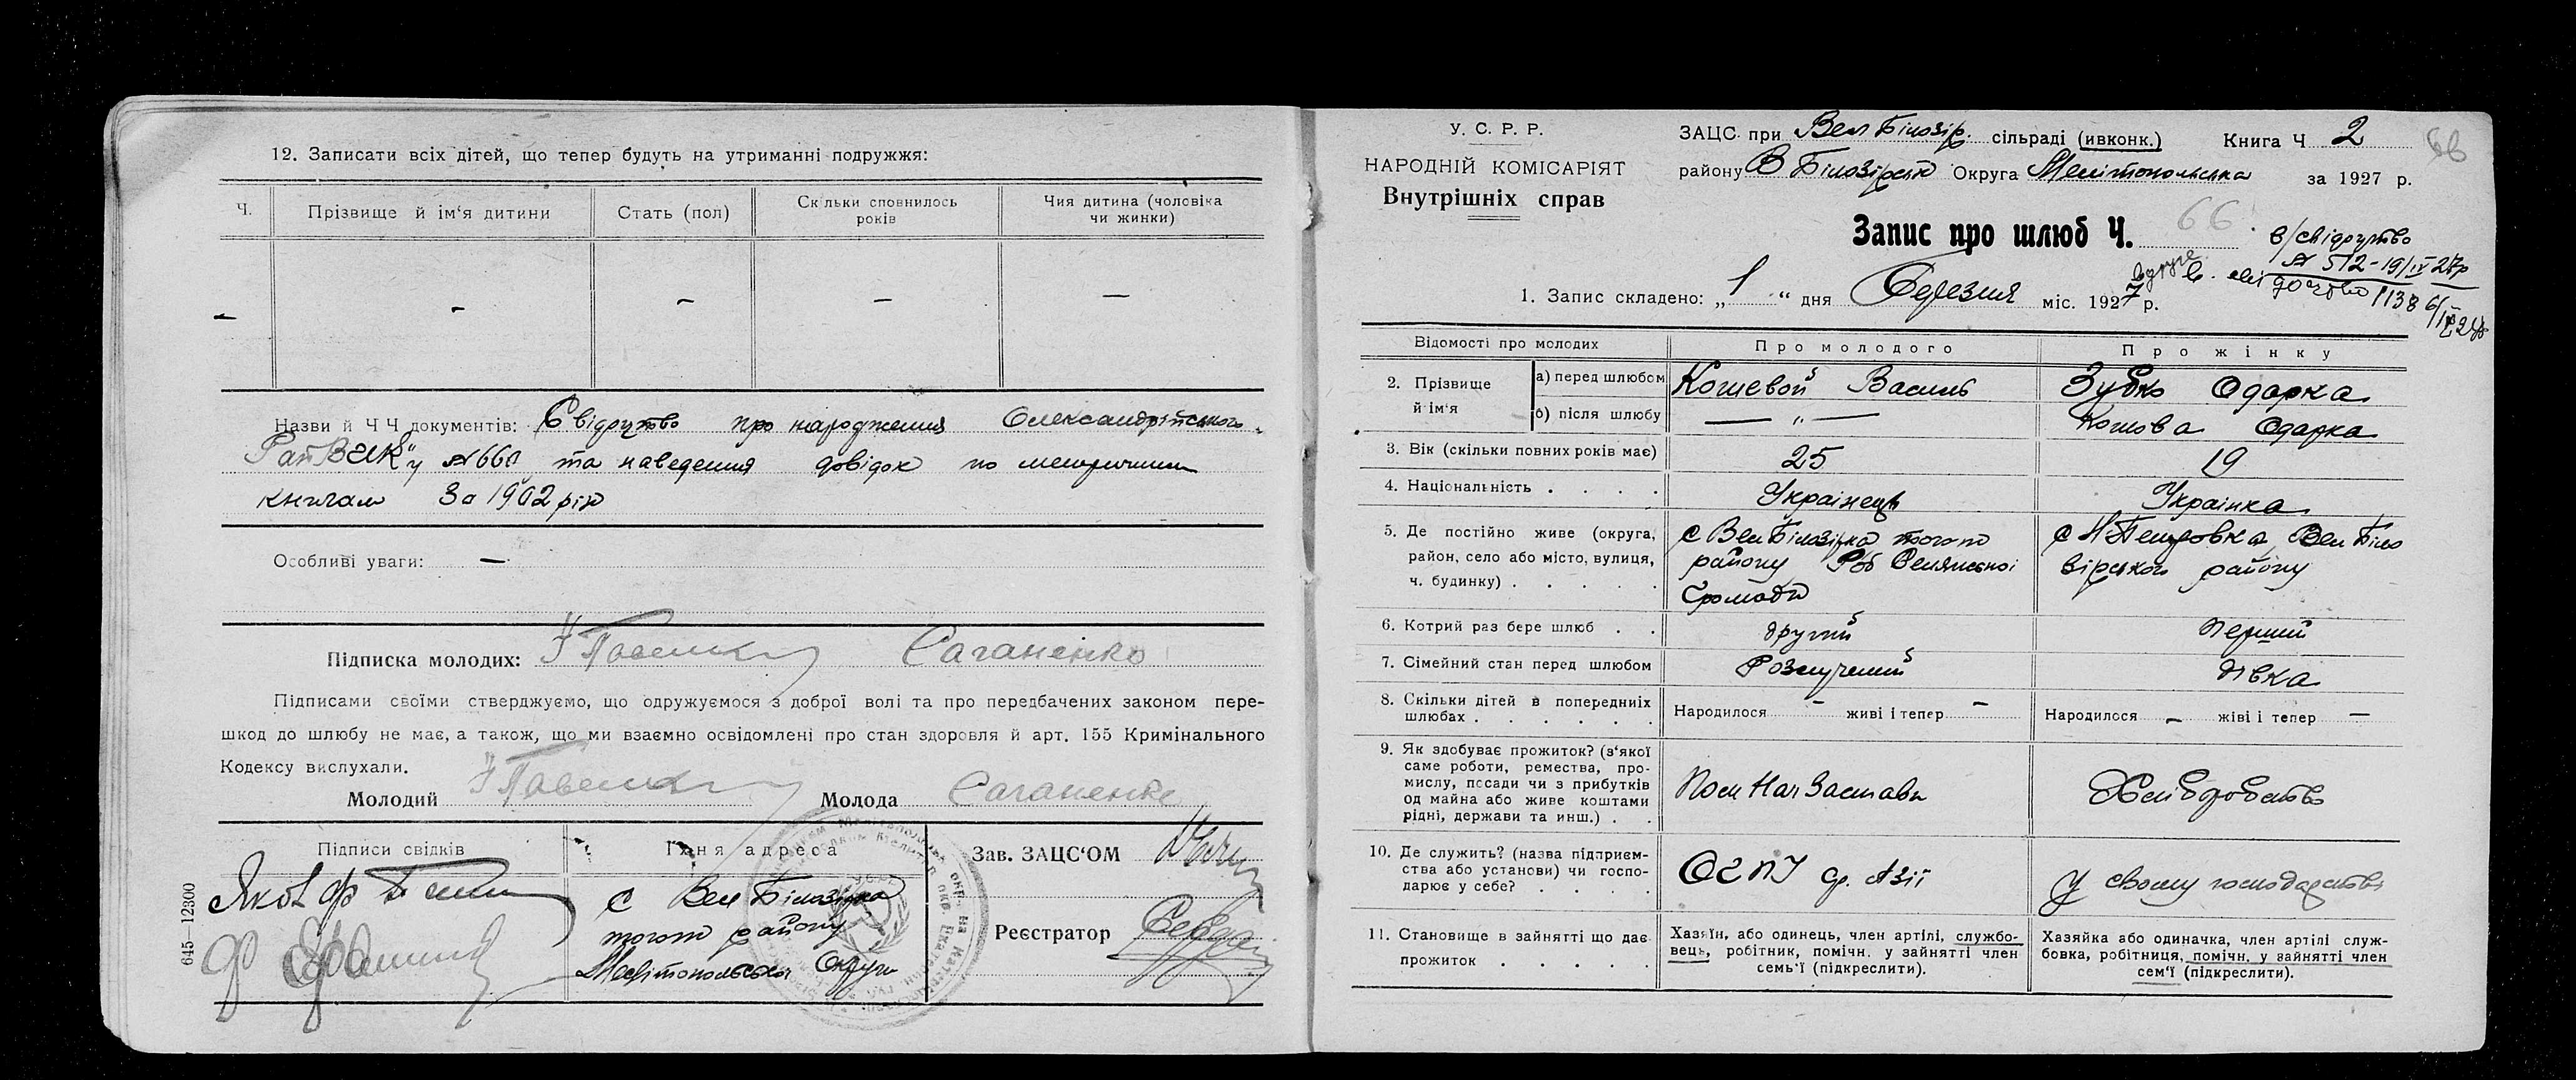 12. Записати всіх дітей, що тепер будуть на утриманні подружжя:
Ч.
Прізвище й ім‘я дитини
Стать (пол)
Скільки сповнилось
років
Чия дитина (чоловіка
чи жинки)
— — — — —
Назви й Ч Ч документів: Свідоцтво про народження Олександрійського
№ 660 та наведення довідок по метричним
книгам За 1902 рік
Особливі уваги: —
Підписка молодих: Саганенко
Підписами своїми стверджуємо, що одружуємося з доброї волі та про передбачених законом пере-
шкод до шлюбу не має, а також, що ми взаємно освідомлені про стан здоровля й арт. 155 Кримінального
Кодексу вислухали.
Молодий Молода Саганенко
Підписи свідків
Їхня адреса
Зав. ЗАЦС‘ОМ
Яков
с Вел Білозірка
того-ж району
Мелітопольської Округи
Реєстратор
645—12300
У. С. Р. Р.
НАРОДНІЙ КОМІСАРІЯТ
Внутрішніх справ
ЗАЦС при Вел Білозір. сільраді (ивконк.) Книга Ч 2
району В Білозірськ Округа Мелітопольська за 1927 р.
66
Запис про шлюб Ч. 66
в/свідоцтво
№ 512-19/IV 27р
1138
1. Запис складено: „1“ дня Березня міс. 1927 р.
Відомості про молодих
Про молодого
Про жінку
2. Прізвище
й ім‘я
а) перед шлюбом
Кошевой Василь
Зубко Одарка
б) після шлюбу
— „ —
Кошова Одарка
3. Вік (скільки повних років має)
25
19
4. Національність . . . .
Українець
Українка
5. Де постійно живе (округа,
район, село або місто, вулиця,
ч. будинку) . . . . .
с Вел Білозірка того-ж
району Селянської
Громади
с Н Петровка Вел Біло
зірського району
6. Котрий раз бере шлюб . .
другий
перший
7. Сімейний стан перед шлюбом
Розлучений
дівка
8. Скільки дітей в попередниіх
шлюбах . . . . . .
Народилося — живі і тепер —
Народилося — жіві і тепер —
9. Як здобуває прожиток? (з‘якої
саме роботи, ремества, про-
мислу, посади чи з прибутків
од майна або живе коштами
рідні, держави та инш.) . .
Пом Нач Застави
Хліборобство
10. Де служить? (назва підприєм-
ства або установи) чи госпо-
дарює у себе? . . . .
ОГПУ Ср. Азії
У свому господарстві
11. Становище в зайнятті що дає
прожиток . . . . .
Хазяїн, або одинець, член артілі, службо-
вець, робітник, помічн. у зайнятті член
семь‘ї (підкреслити).
Хазяйка або одиначка, член артілі служ-
бовка, робітниця, помічн. у зайнятті член
сем‘ї (підкреслити).